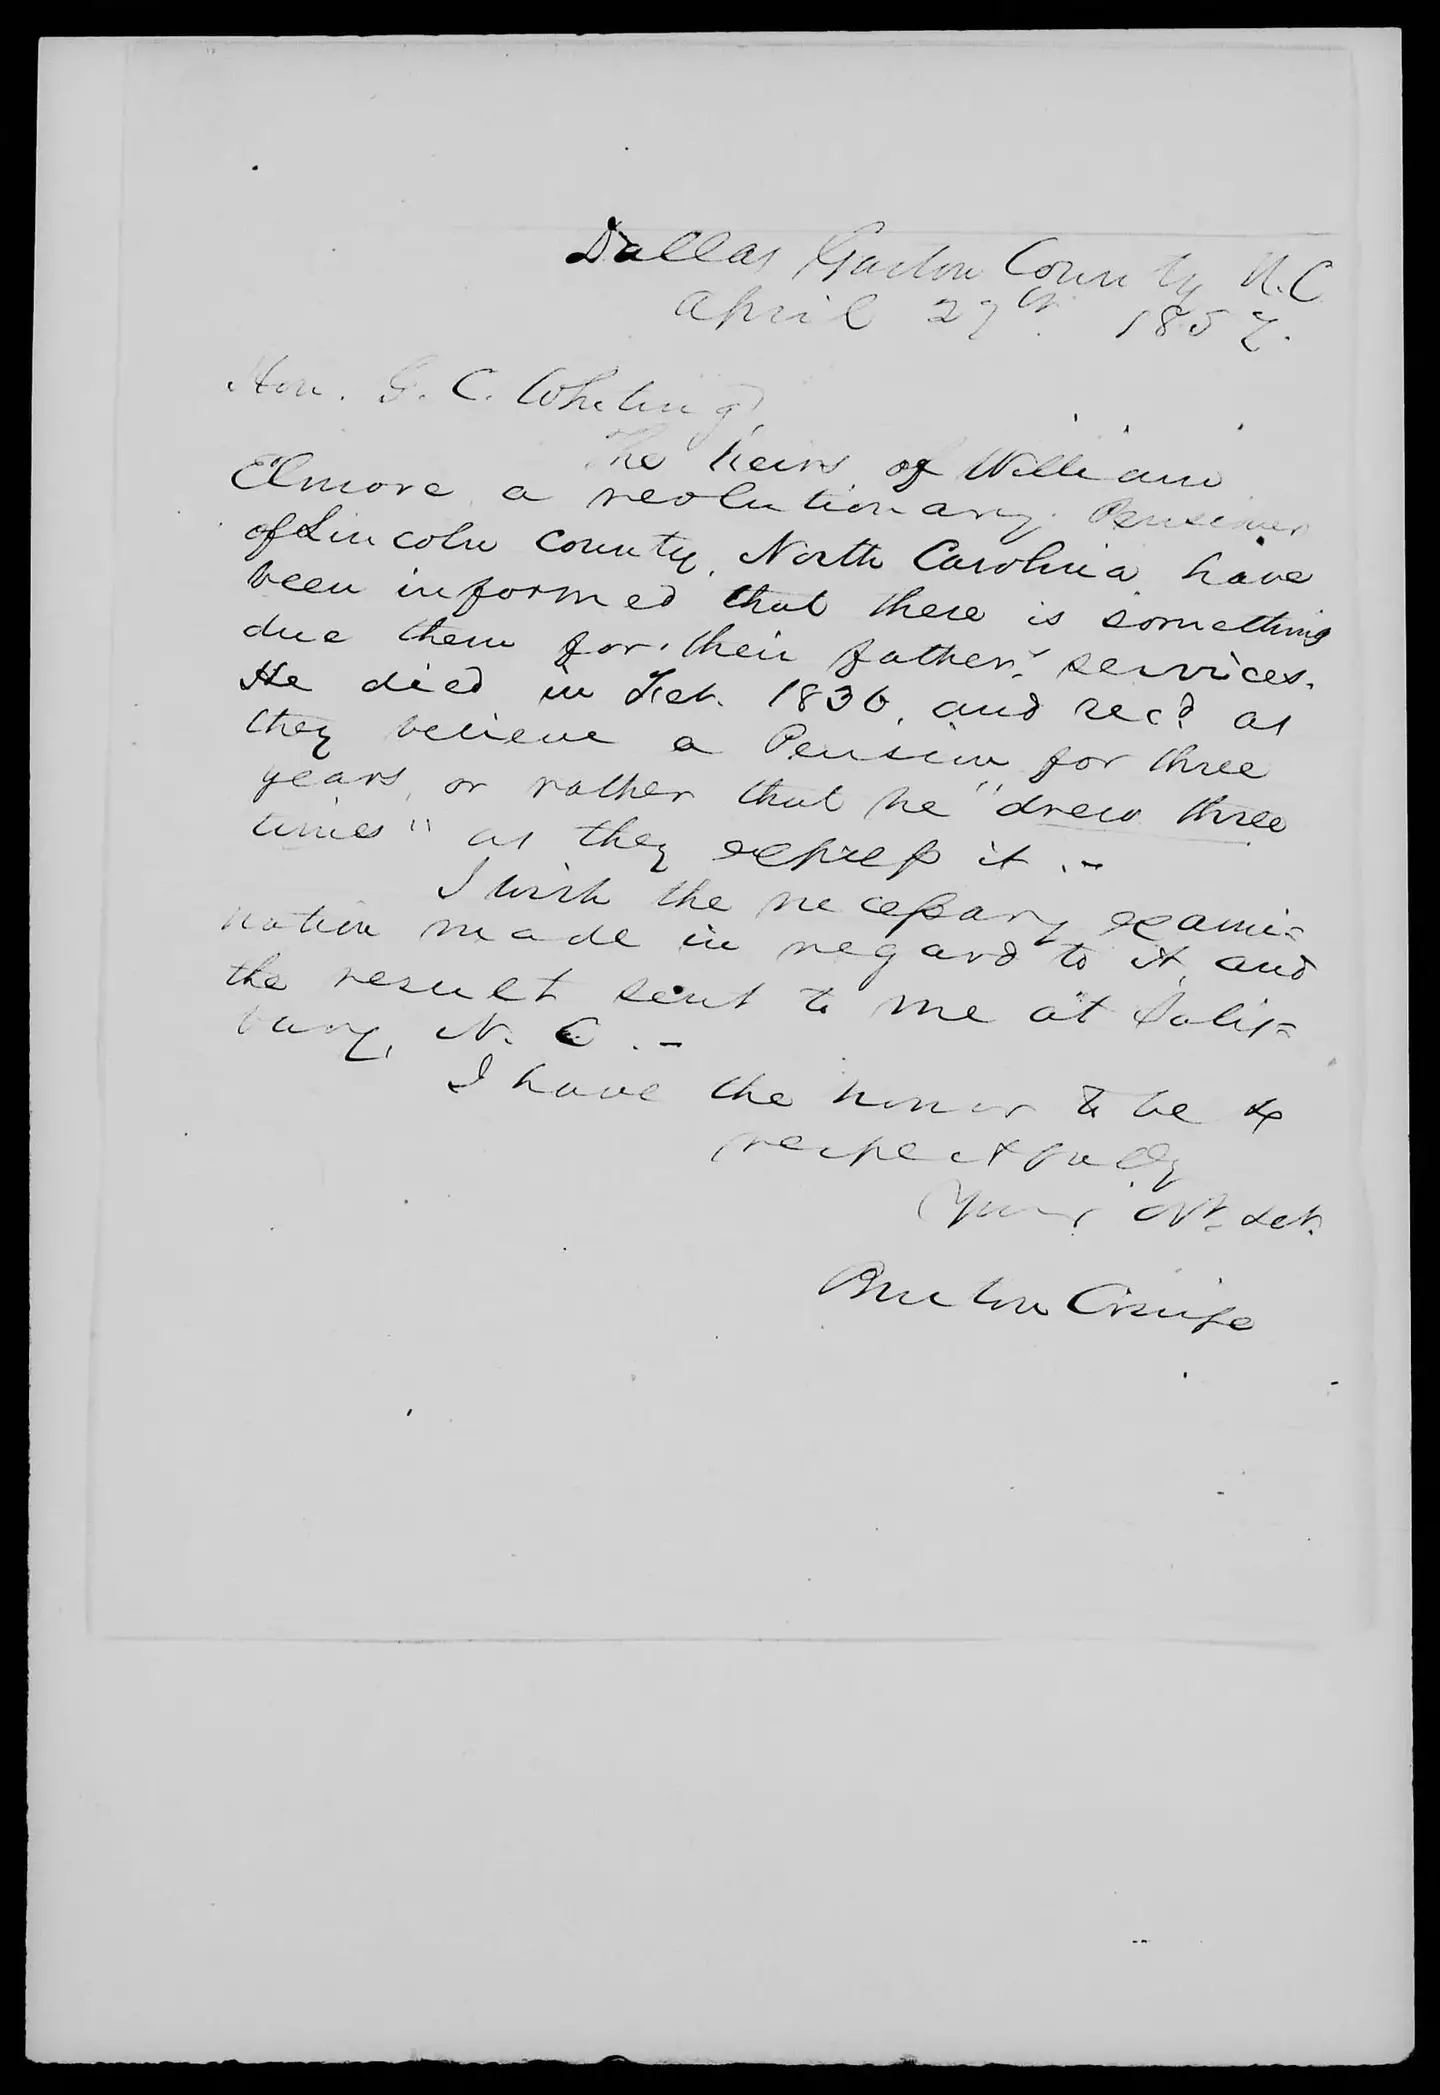 Dallas Gaston County N.C
April 27th 1857.
Hon. G. C. Whiting,
The heirs of William
Elmore a revolutionary Pensioner
of Lincoln county, North Carolina have
been informed that there is something
due them for their father's services.
He died in Feb. 1836, and recd as
they believe a Pension for three
years, or rather that he "drew three
times" as they express it.-
I wish the necessary exami=
nation made in regard to it, and
the result sent to me at Salis=
bury, N. C. -
I have the honor to be &
respectfully
Your Obt. Sevt.
Burton Craige